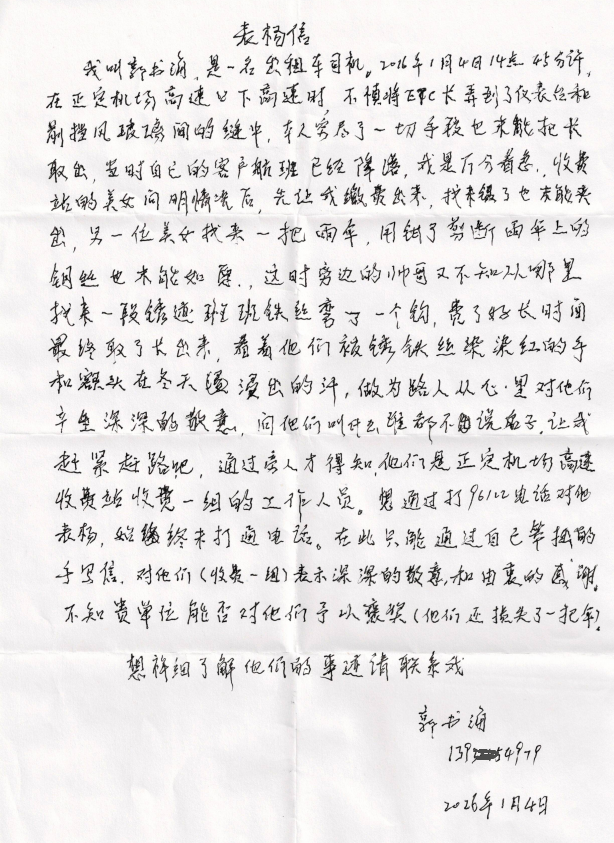 表杨信
我叫郭书海,是一名出租车司机。2016年1月4日14点45分许,
在正定机场高速口下高速时,不慎将ETC卡弄到了仪表台和
前挡风玻璃间的缝中,本人穷尽了一切手段也未能把卡
取出,当时自己的客户航班已经降落,我是万分着急.,收费
站的美女问明情况后,先让我缴费出来,找来镊子也未能夹
出,另一位美女找来一把雨伞,用钳子剪断雨伞上的
钢丝也未能如愿.,这时旁边的帅哥又不知从哪里
找来一段锈迹班班铁丝弯了一个钩,费了好长时间
最终取了卡出来,看着他们被锈铁丝染染红的手
和额头在冬天浸渍出的汗,做为路人从心里对他们
产生深深的敬意,问他们叫什么谁都不说名子,让我
赶紧赶路吧,通过旁人才得知,他们是正定机场高速
收费站收费一组的工作人员。想通过打96122电话对他
表杨,始终未打通电话。在此只能通过自己笨拙的
手写信,对他们(收费一组)表示深深的敬意,和由衷的感谢.
不知贵单位能否对他们予以褒奖(他们还损失了一把伞).
想祥细了解他们的事迹请联系我
郭书海
139 54979
2026年1月4日